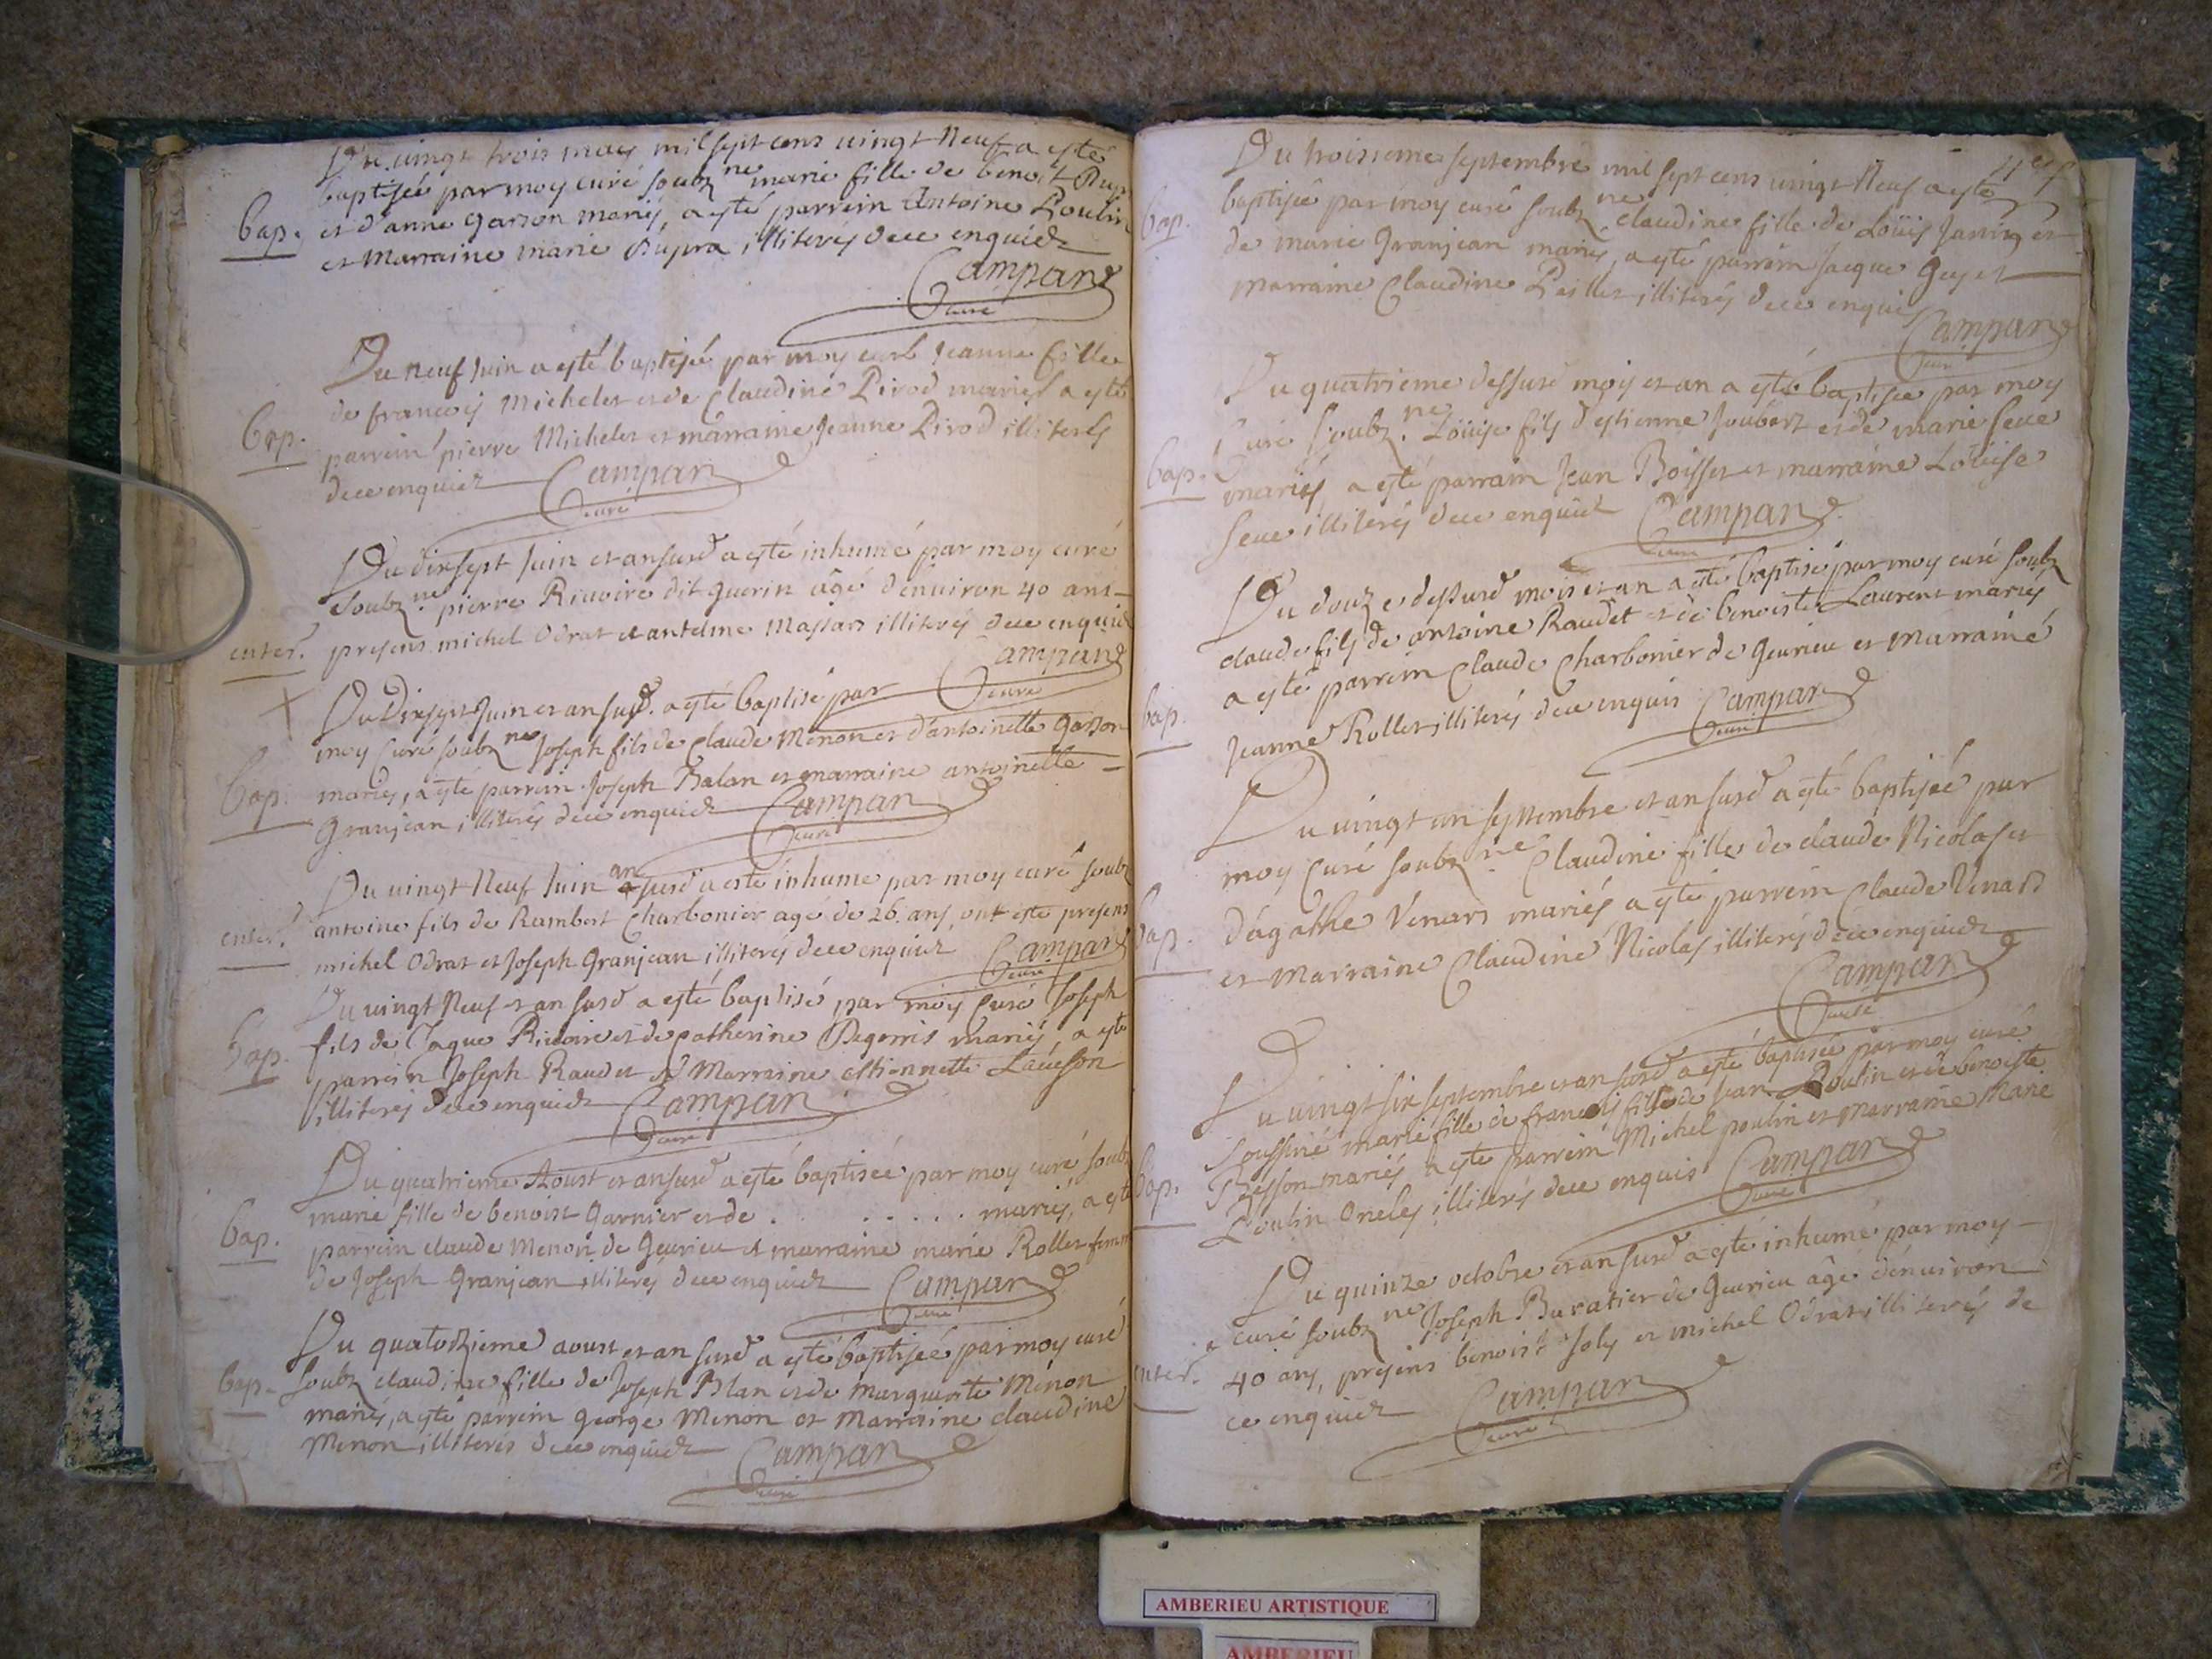 Du vingt trois may mil sept cens vingt Neuf a esté
baptisée par moy curé soubz ne marie fille de benoit
bap. et d'anne garson mariés, a esté parrein Antoine Poulin
et Marraine marie Dupra illiterés de ce enquiez
Campan
curé
Du neuf Juin a esté baptisée par moy curé Jeanne fille
de françois Michelet et de Claudine Pirod mariés a esté
bap. parrein pierre Michelet et marraine Jeanne Pirod illiterés
de ce enquiez Campan
curé
Du dixsept Juin et an susd a esté inhumé par moy curé
soubz ne pierre Riuoire dit guerin âgé d'enuiron 40 ans
enter. presens michel Odrat et antelme illiterés de ce enquiez
Campan
curé
Du Dixsept Juin et an susd. a esté baptisé par
moy Curé soubz ne Joseph fils de Claude Menon et d'antoinette garson
bap. mariés, a esté parrein Joseph Balan et marraine antoinette
granjean illiterés de ce enquiez Campan
curé
Du vingt Neuf Juin an susd a esté inhumé par moy curé soubz
enter. antoine fils de Rambert Charbonier agé de 26 ans, ont esté presens
michel Odrat et Joseph Granjean illiterés de ce enquiez Campan
curé
Du vingt Neuf et an susd a esté baptisé par moy Curé Joseph
bap. fils de Jaque Riuoire et de catherine mariés, a esté
parrein Joseph Raudet et Marraine estiennette
illiterés de ce enquiez Campan
curé
Du quatrieme Aoust et an susd a esté baptisée par moy curé soubz
marie fille de benoist garnier et de . . . . . . mariés, a esté
bap. parrein claude Menon de Geurieu et marraine marie Rollet femme
de Joseph Granjean illiterés de ce enquiez Campan
curé
Du quatorzieme aoust et an susd a esté baptisée par moy curé
bap. soubz claudine fille de Joseph Blan et de marguerite Menon
mariés, a esté parrein george Menon et Marraine claudine
Menon illiterés de ce enquiez Campan
curé
Du troisieme septembre mil sept cens vingt Neuf a esté
bap. baptisée par moy curé soubz ne claudine fille de Loüis Janin et
de marie Granjean mariés, a esté parrein Jacque Guy et
marraine Claudine Peillet illiterés de ce enquis
Campan
curé
Du quatrieme dessusd mois et an a esté baptisée par moy
Curé soubz ne Loüise fils d'estienne Joubert et de marie seue
bap. mariés a esté parrain Jean Boisset et marraine Loüise
seue illiterés de ce enquiez Campan
curé
Du douze dessusd mois et an a esté baptisé par moy curé soubz
claude fils de antoine Raudet et de benoiste Laurent mariés
a esté parrein Claude Charbonier de Geurieu et Marraine
bap. Jeanne Rollet illiterés de ce enquis Campan
curé
Du vingt un septembre et an susd a esté baptisée par
moy Curé soubz ne Claudine fille de claude Nicolas et
bap. d'agathe Venard mariés a esté parrein Claude Venard
et Marraine Claudine Nicolas illiterés de ce enquiez
Campan
curé
Du vingt six septembre et an susd a esté baptisée par moy curé
soussiné marie fille de françois fils de Jean Poulin et de benoiste
bap. Besson mariés a esté parrein Michel poulin et Marraine Marie
Poulin illiterés de ce enquis Campan
curé
Du quinze octobre et an susd a esté inhumé par moy
curé soubz ne Joseph Buratier de Geurieu âgé d'enuiron
enter. 40 ans, presens benoist Joly et michel Odrat illiterés de
ce enquiez Campan
curé
AMBERIEU ARTISTIQUE
AMBERIEU